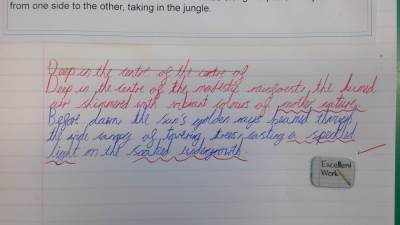 from one side to the other, taking in the jungle.
Deep in the centre of the centre of
Deep in the centre of the majestic rainforest, the humid
air shimmered with vibrant colours of mother nature.
Before dawn, the sun's golden rays beamed through
the wide ranges of towering trees, casting a speckled
light on the soaked undergrowth.
Excellent
Work